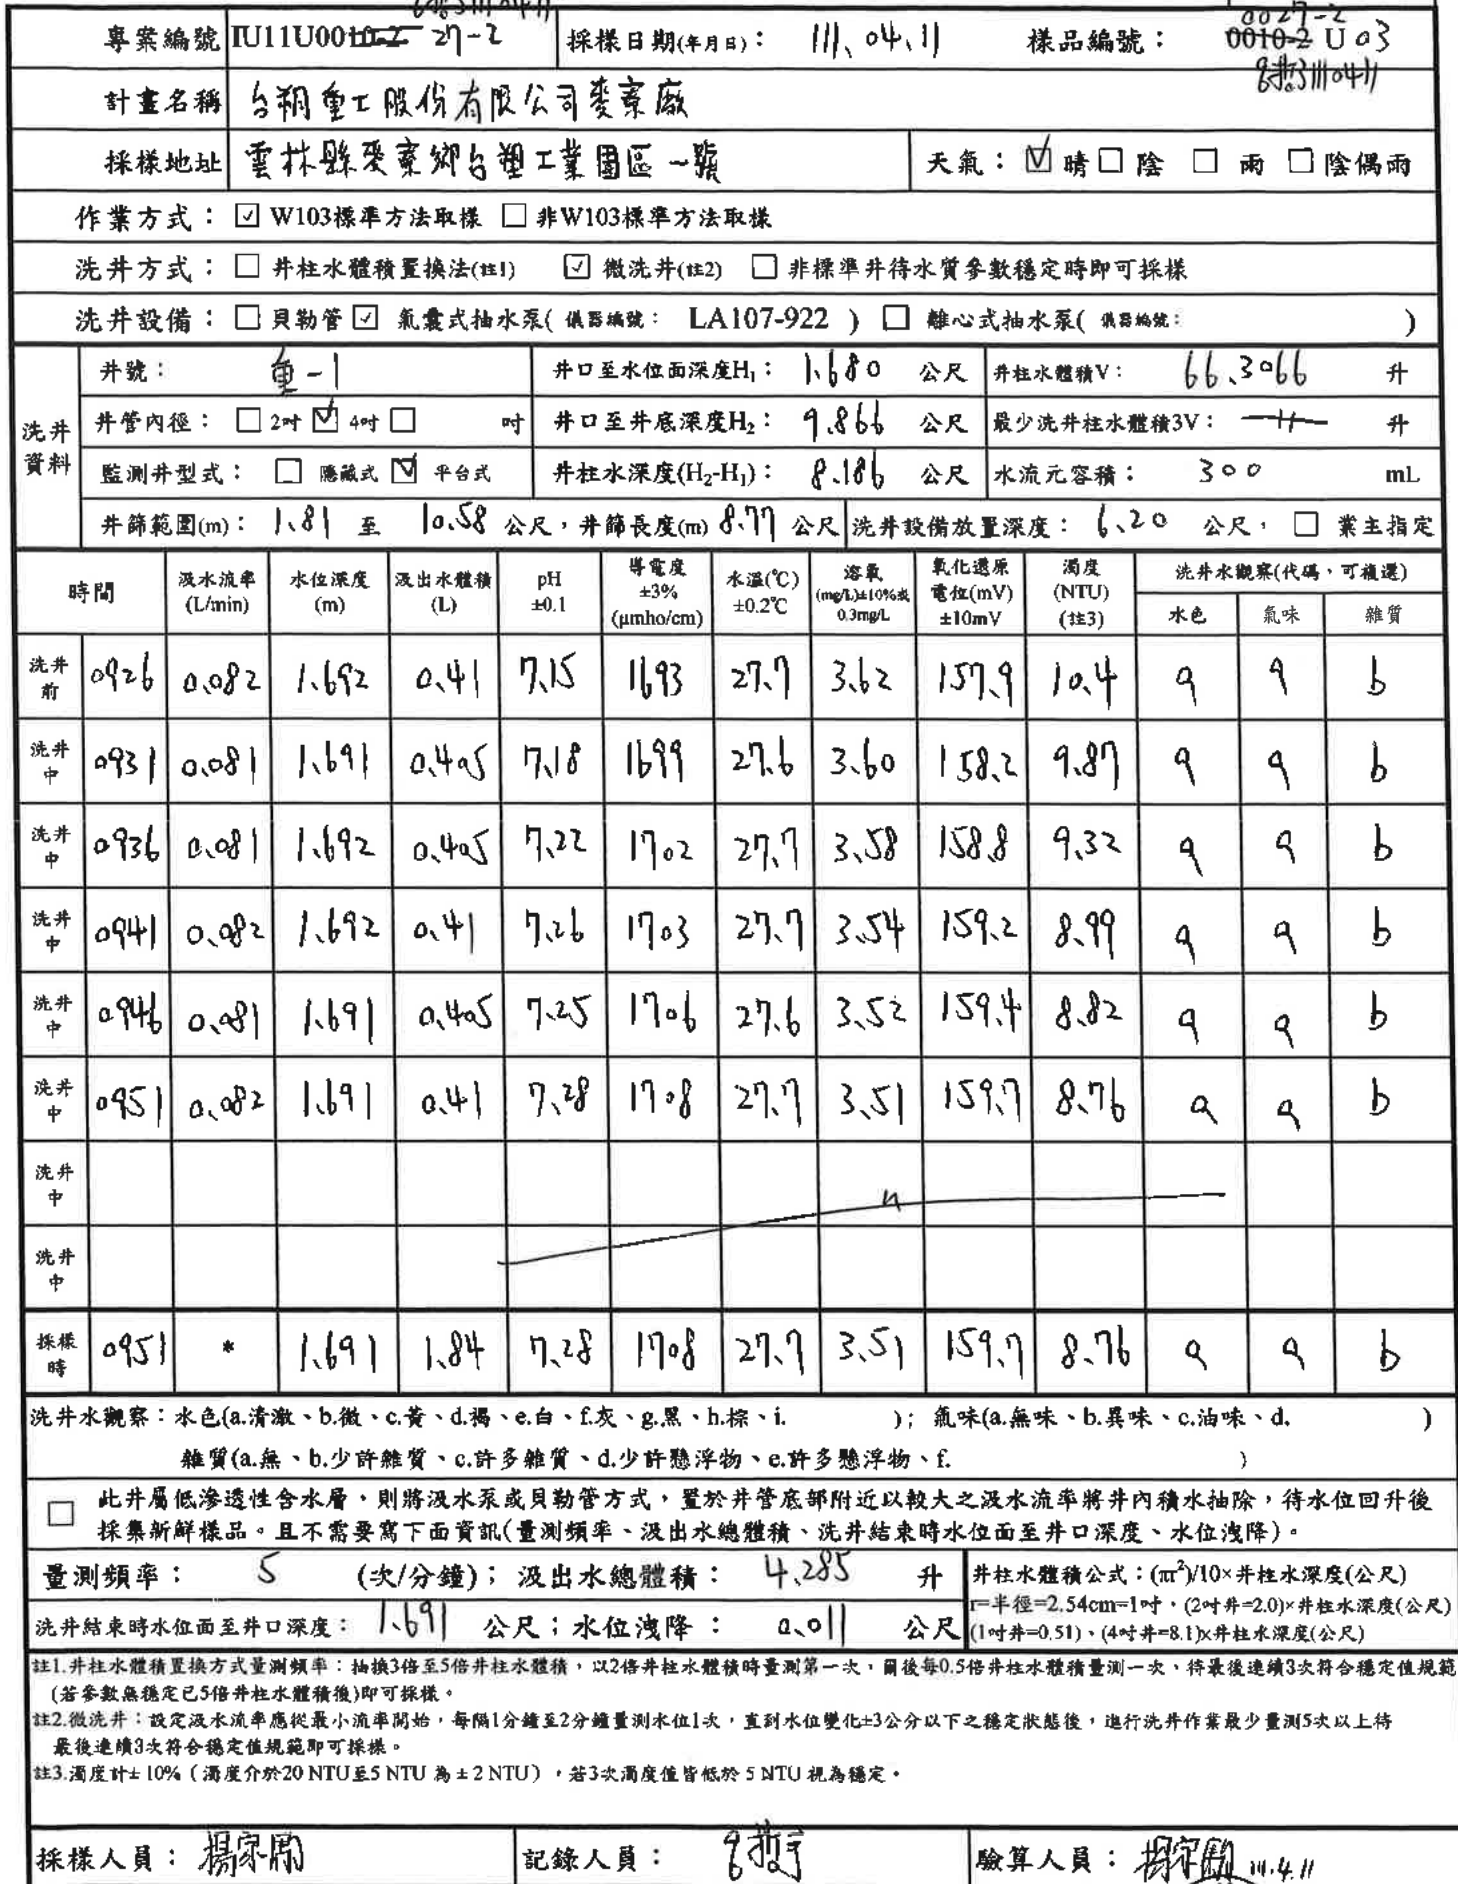 專案編號 IU11U0010-2 27-2 採樣日期(年月日): 111、04、11 樣品編號: 0027-2 0010-2 U03
計畫名稱 台朔重工股份有限公司麥寮廠
採樣地址 雲林縣麥寮鄉台塑工業園區一號 天氣: ☑ 晴 □ 陰 □ 雨 □ 陰偶雨
作業方式: ☑ W103標準方法取樣 □ 非W103標準方法取樣
洗井方式: □ 井柱水體積置換法(註1) ☑ 微洗井(註2) □ 非標準井待水質參數穩定時即可採樣
洗井設備: □ 貝勒管 ☑ 氣囊式抽水泵( 儀器編號: LA107-922 ) □ 離心式抽水泵( 儀器編號: )
洗井資料
井號: 重-1 井口至水位面深度H₁: 1.680 公尺 井柱水體積V: 66.3066 升
井管內徑: □ 2吋 ☑ 4吋 □ 吋 井口至井底深度H₂: 9.866 公尺 最少洗井柱水體積3V: 升
監測井型式: □ 隱藏式 ☑ 平台式 井柱水深度(H₂-H₁): 8.186 公尺 水流元容積: 300 mL
井篩範圍(m): 1.81 至 10.58 公尺,井篩長度(m) 8.77 公尺 洗井設備放置深度: 6.20 公尺, □ 業主指定
時間 汲水流率 (L/min) 水位深度 (m) 汲出水體積 (L) pH ±0.1 導電度 ±3% (μmho/cm) 水溫(℃) ±0.2℃ 溶氧 (mg/L)±10%或 0.3mg/L 氧化還原電位(mV) ±10mV 濁度 (NTU) (註3) 洗井水觀察(代碼,可複選)
水色 氣味 雜質
洗井前 0926 0.082 1.692 0.41 7.15 1693 27.7 3.62 157.9 10.4 a a b
洗井中 0931 0.081 1.691 0.405 7.18 1699 27.6 3.60 158.2 9.87 a a b
洗井中 0936 0.081 1.692 0.405 7.22 1702 27.7 3.58 158.8 9.32 a a b
洗井中 0941 0.082 1.692 0.41 7.26 1703 27.7 3.54 159.2 8.99 a a b
洗井中 0946 0.081 1.691 0.405 7.25 1706 27.6 3.52 159.4 8.82 a a b
洗井中 0951 0.082 1.691 0.41 7.28 1708 27.7 3.51 159.7 8.76 a a b
洗井中
洗井中
採樣時 0951 * 1.691 1.84 7.28 1708 27.7 3.51 159.7 8.76 a a b
洗井水觀察:水色(a.清澈、b.微、c.黃、d.褐、e.白、f.灰、g.黑、h.棕、i. ); 氣味(a.無味、b.異味、c.油味、d. )
雜質(a.無、b.少許雜質、c.許多雜質、d.少許懸浮物、e.許多懸浮物、f. )
□ 此井屬低滲透性含水層,則將汲水泵或貝勒管方式,置於井管底部附近以較大之汲水流率將井內積水抽除,待水位回升後
採集新鮮樣品。且不需要寫下面資訊(量測頻率、汲出水總體積、洗井結束時水位面至井口深度、水位洩降)。
量測頻率: 5 (次/分鐘); 汲出水總體積: 4.285 升
洗井結束時水位面至井口深度: 1.691 公尺;水位洩降: 0.011 公尺
井柱水體積公式:(πr²)/10×井柱水深度(公尺)
r=半徑=2.54cm=1吋,(2吋井=2.0)×井柱水深度(公尺)
(1吋井=0.51)、(4吋井=8.1)×井柱水深度(公尺)
註1.井柱水體積置換方式量測頻率:抽換3倍至5倍井柱水體積,以2倍井柱水體積時量測第一次,爾後每0.5倍井柱水體積量測一次,待最後連續3次符合穩定值規範
(若參數無穩定已5倍井柱水體積後)即可採樣。
註2.微洗井:設定汲水流率應從最小流率開始,每隔1分鐘至2分鐘量測水位1次,直到水位變化±3公分以下之穩定狀態後,進行洗井作業最少量測5次以上待
最後連續3次符合穩定值規範即可採樣。
註3.濁度計± 10%(濁度介於20 NTU至5 NTU 為 ± 2 NTU),若3次濁度值皆低於 5 NTU 視為穩定。
採樣人員: 記錄人員: 驗算人員: 111.4.11